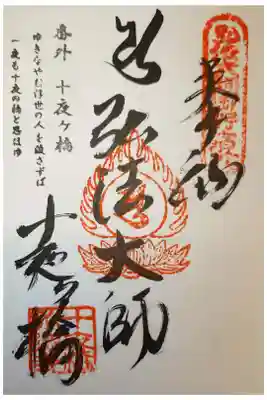 奉納
弘法大師
十夜ヶ橋
番外 十夜ヶ橋
ゆきなやむ浮世の人を渡さずば
一夜も十夜の橋と思ほゆ